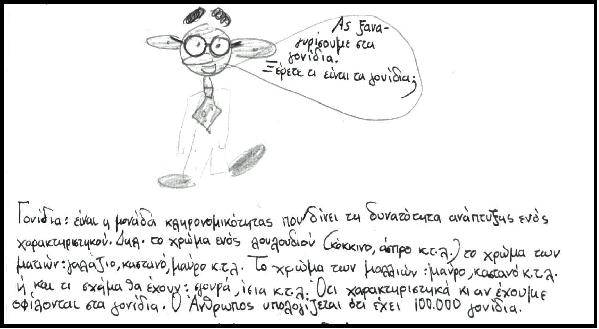 Ας ξανα-
γυρίσουμε στα
γονίδια.
Ξέρετε τι είναι τα γονίδια;
Γονίδια: είναι η μονάδα κληρονομικότητας που δίνει τη δυνατότητα ανάπτυξης ενός
χαρακτηριστικού. Δηλ. το χρώμα ενός λουλουδιού (κόκκινο, άσπρο κ.τ.λ.) το χρώμα των
ματιών: γαλάζιο, καστανό, μαύρο κ.τ.λ. Το χρώμα των μαλλιών: μαύρο, καστανό κ.τ.λ.
ή και τι σχήμα θα έχουν: σγουρά, ίσια κ.τ.λ. Ότι χαρακτηριστικά κι αν έχουμε
οφίλονται στα γονίδια. Ο Άνθρωπος υπολογίζεται ότι έχει 100.000 γονίδια.